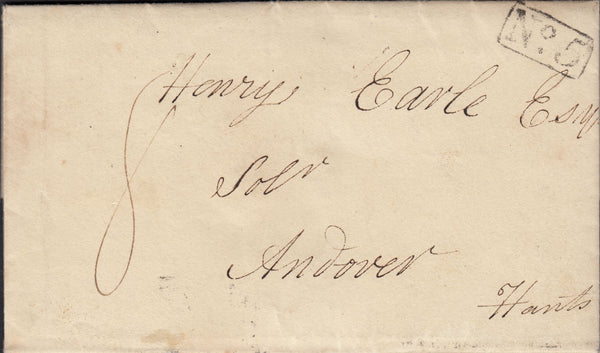 No. 5
Henry Earle Esqr
Solr
Andover
Hants
8